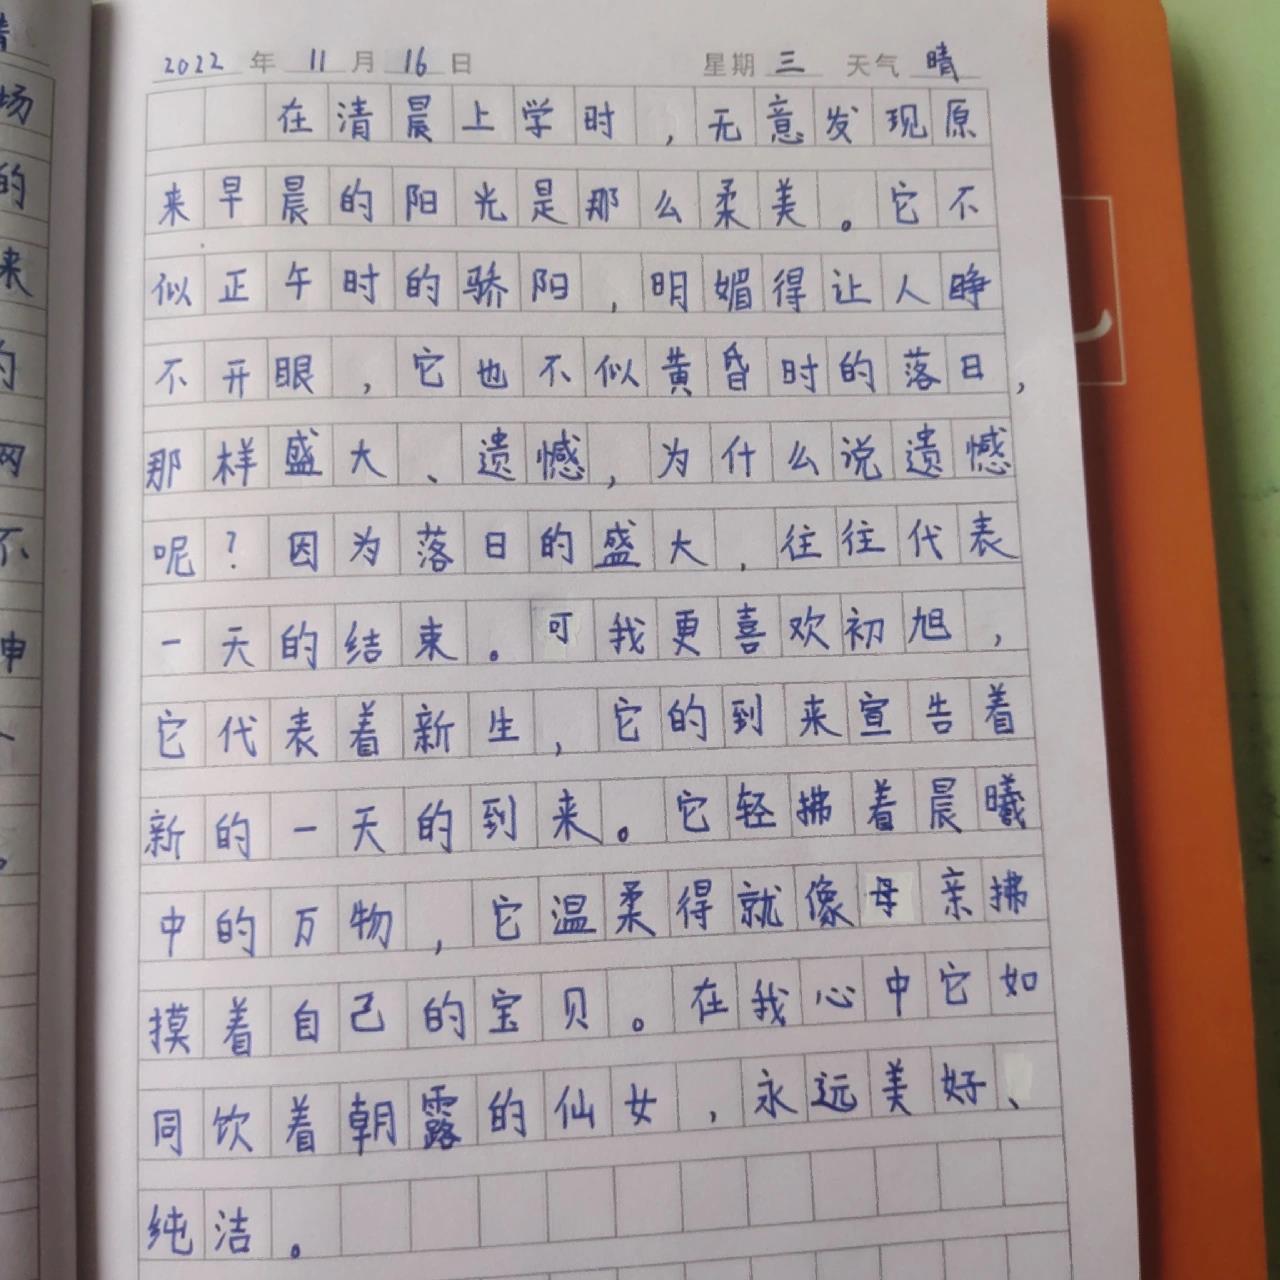 2022 年 11 月 16 日 星期 三 天气 晴
在清晨上学时，无意发现原
来早晨的阳光是那么柔美。它不
似正午时的骄阳，明媚得让人睁
不开眼，它也不似黄昏时的落日，
那样盛大、遗憾，为什么说遗憾
呢？因为落日的盛大，往往代表
一天的结束。可我更喜欢初旭，
它代表着新生，它的到来宣告着
新的一天的到来。它轻拂着晨曦
中的万物，它温柔得就像母亲拂
摸着自己的宝贝。在我心中它如
同饮着朝露的仙女，永远美好、
纯洁。